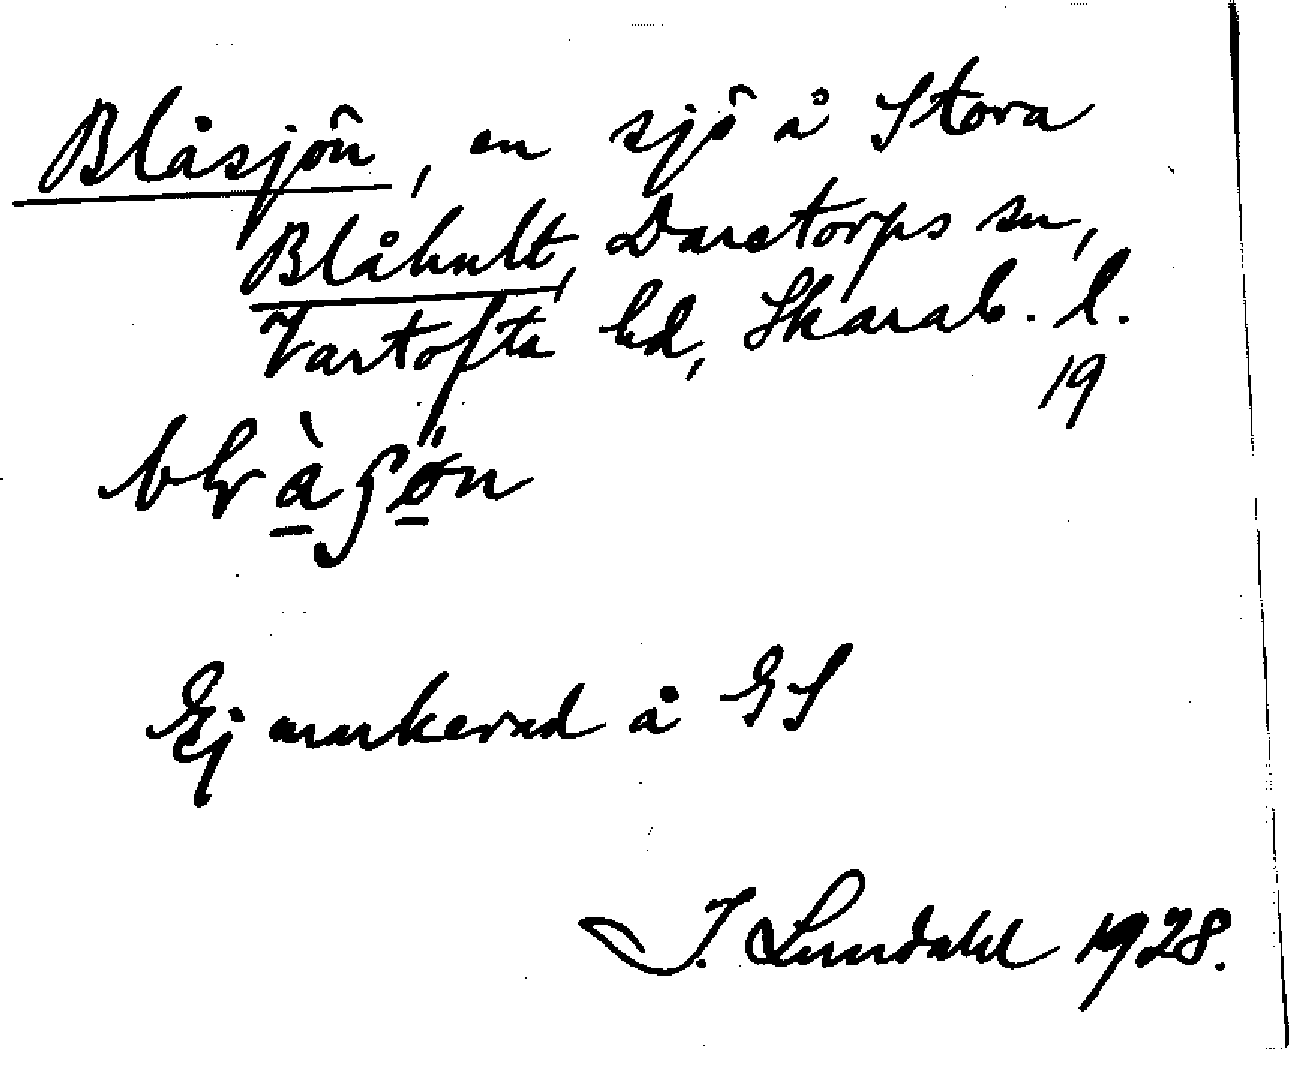 Blåsjön, en sjö å Stora
Blåhult, Daretorps sn,
Vartofta hd, Skarab. l.
19
Ej markerad å GS
I. Lundahl 1928.